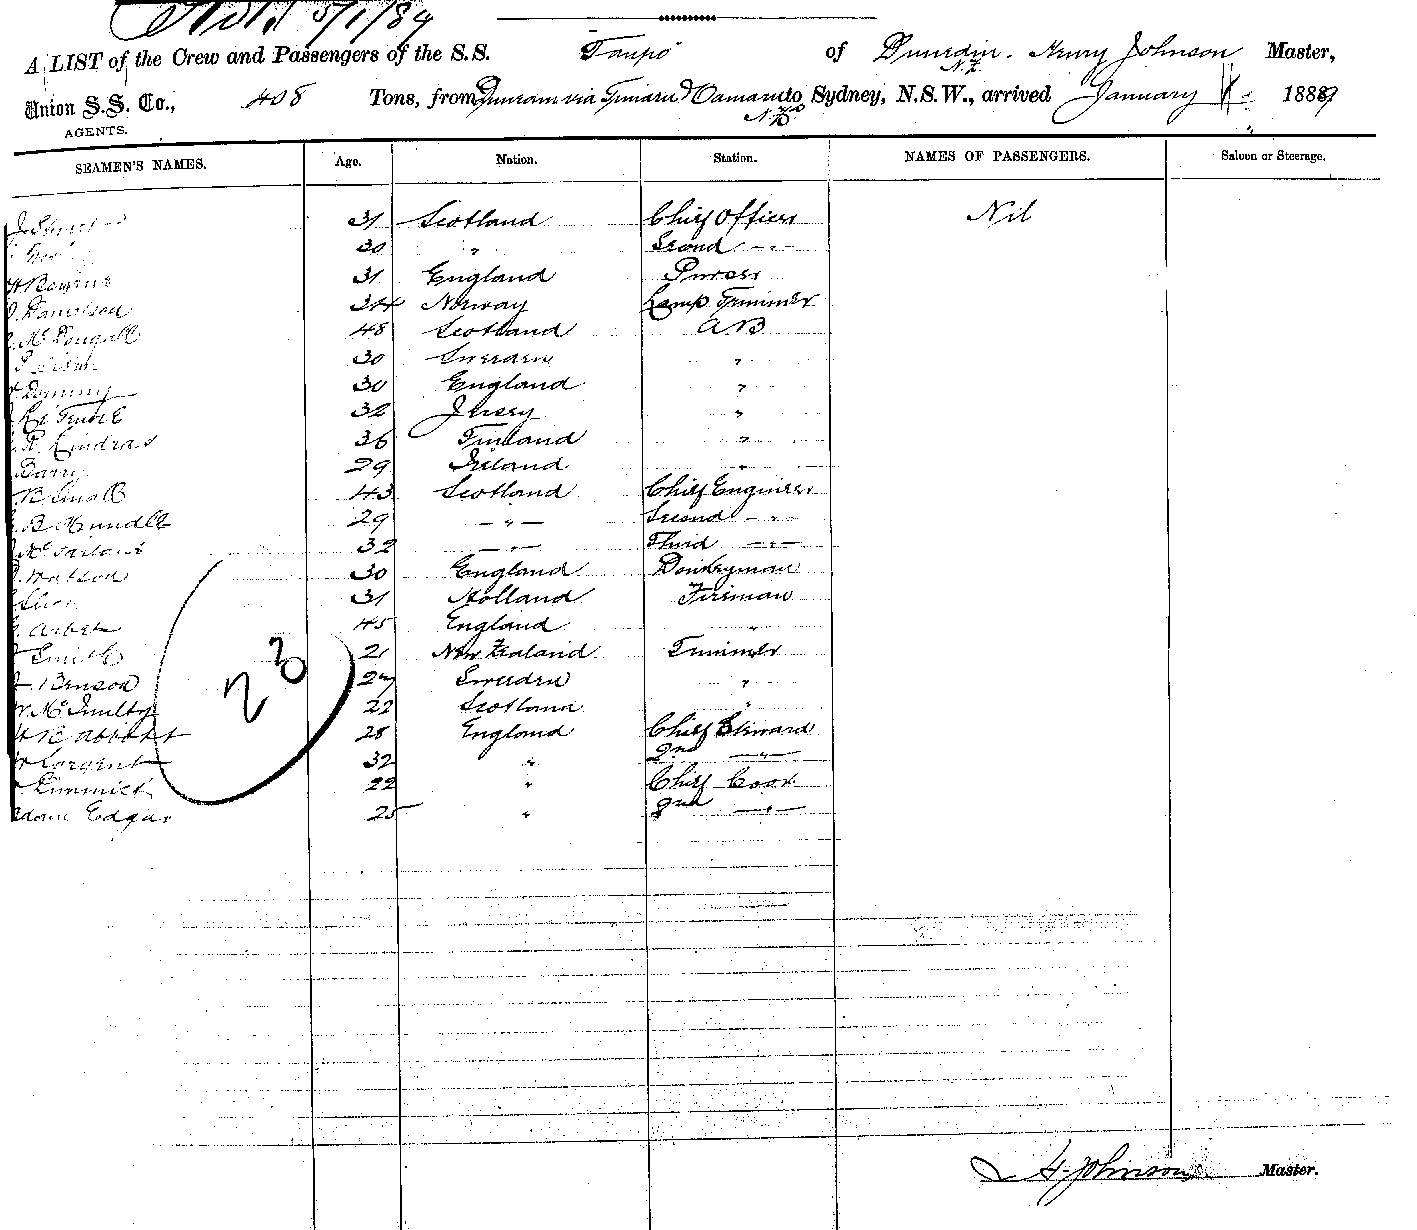 5/1/89
A LIST of the Crew and Passengers of the S.S. Taupo of Dunedin. N.Z. Henry Johnson Master,
Union S.S. Co., 408 Tons, from via Timaru & Oamaru to Sydney, N.S.W., arrived January 1889
AGENTS.
SEAMEN'S NAMES. Age. Nation. Station. NAMES OF PASSENGERS. Saloon or Steerage.
31 Scotland Chief Officer Nil
30 " Second —"—
31 England Purser
Danielson 34 Norway Lamp Trimmer
McDougall 48 Scotland AB
30 Sweden "
30 England "
32 Jersey "
Lindras 36 Finland "
Barry 29 Ireland "
Small 43 Scotland Chief Engineer
B Mundle 29 —"— Second —"—
McFarlane 32 —"— Third —"—
Watson 30 England Donkeyman
31 Holland Fireman
45 England "
Smith 21 New Zealand Trimmer
Benson 27 Sweden "
22 Scotland "
R Abbott 28 England Chief Steward
Sargent 32 " 2nd —"—
22 " Chief Cook
Edgar 25 " 2nd —"—
23
H. Johnson Master.